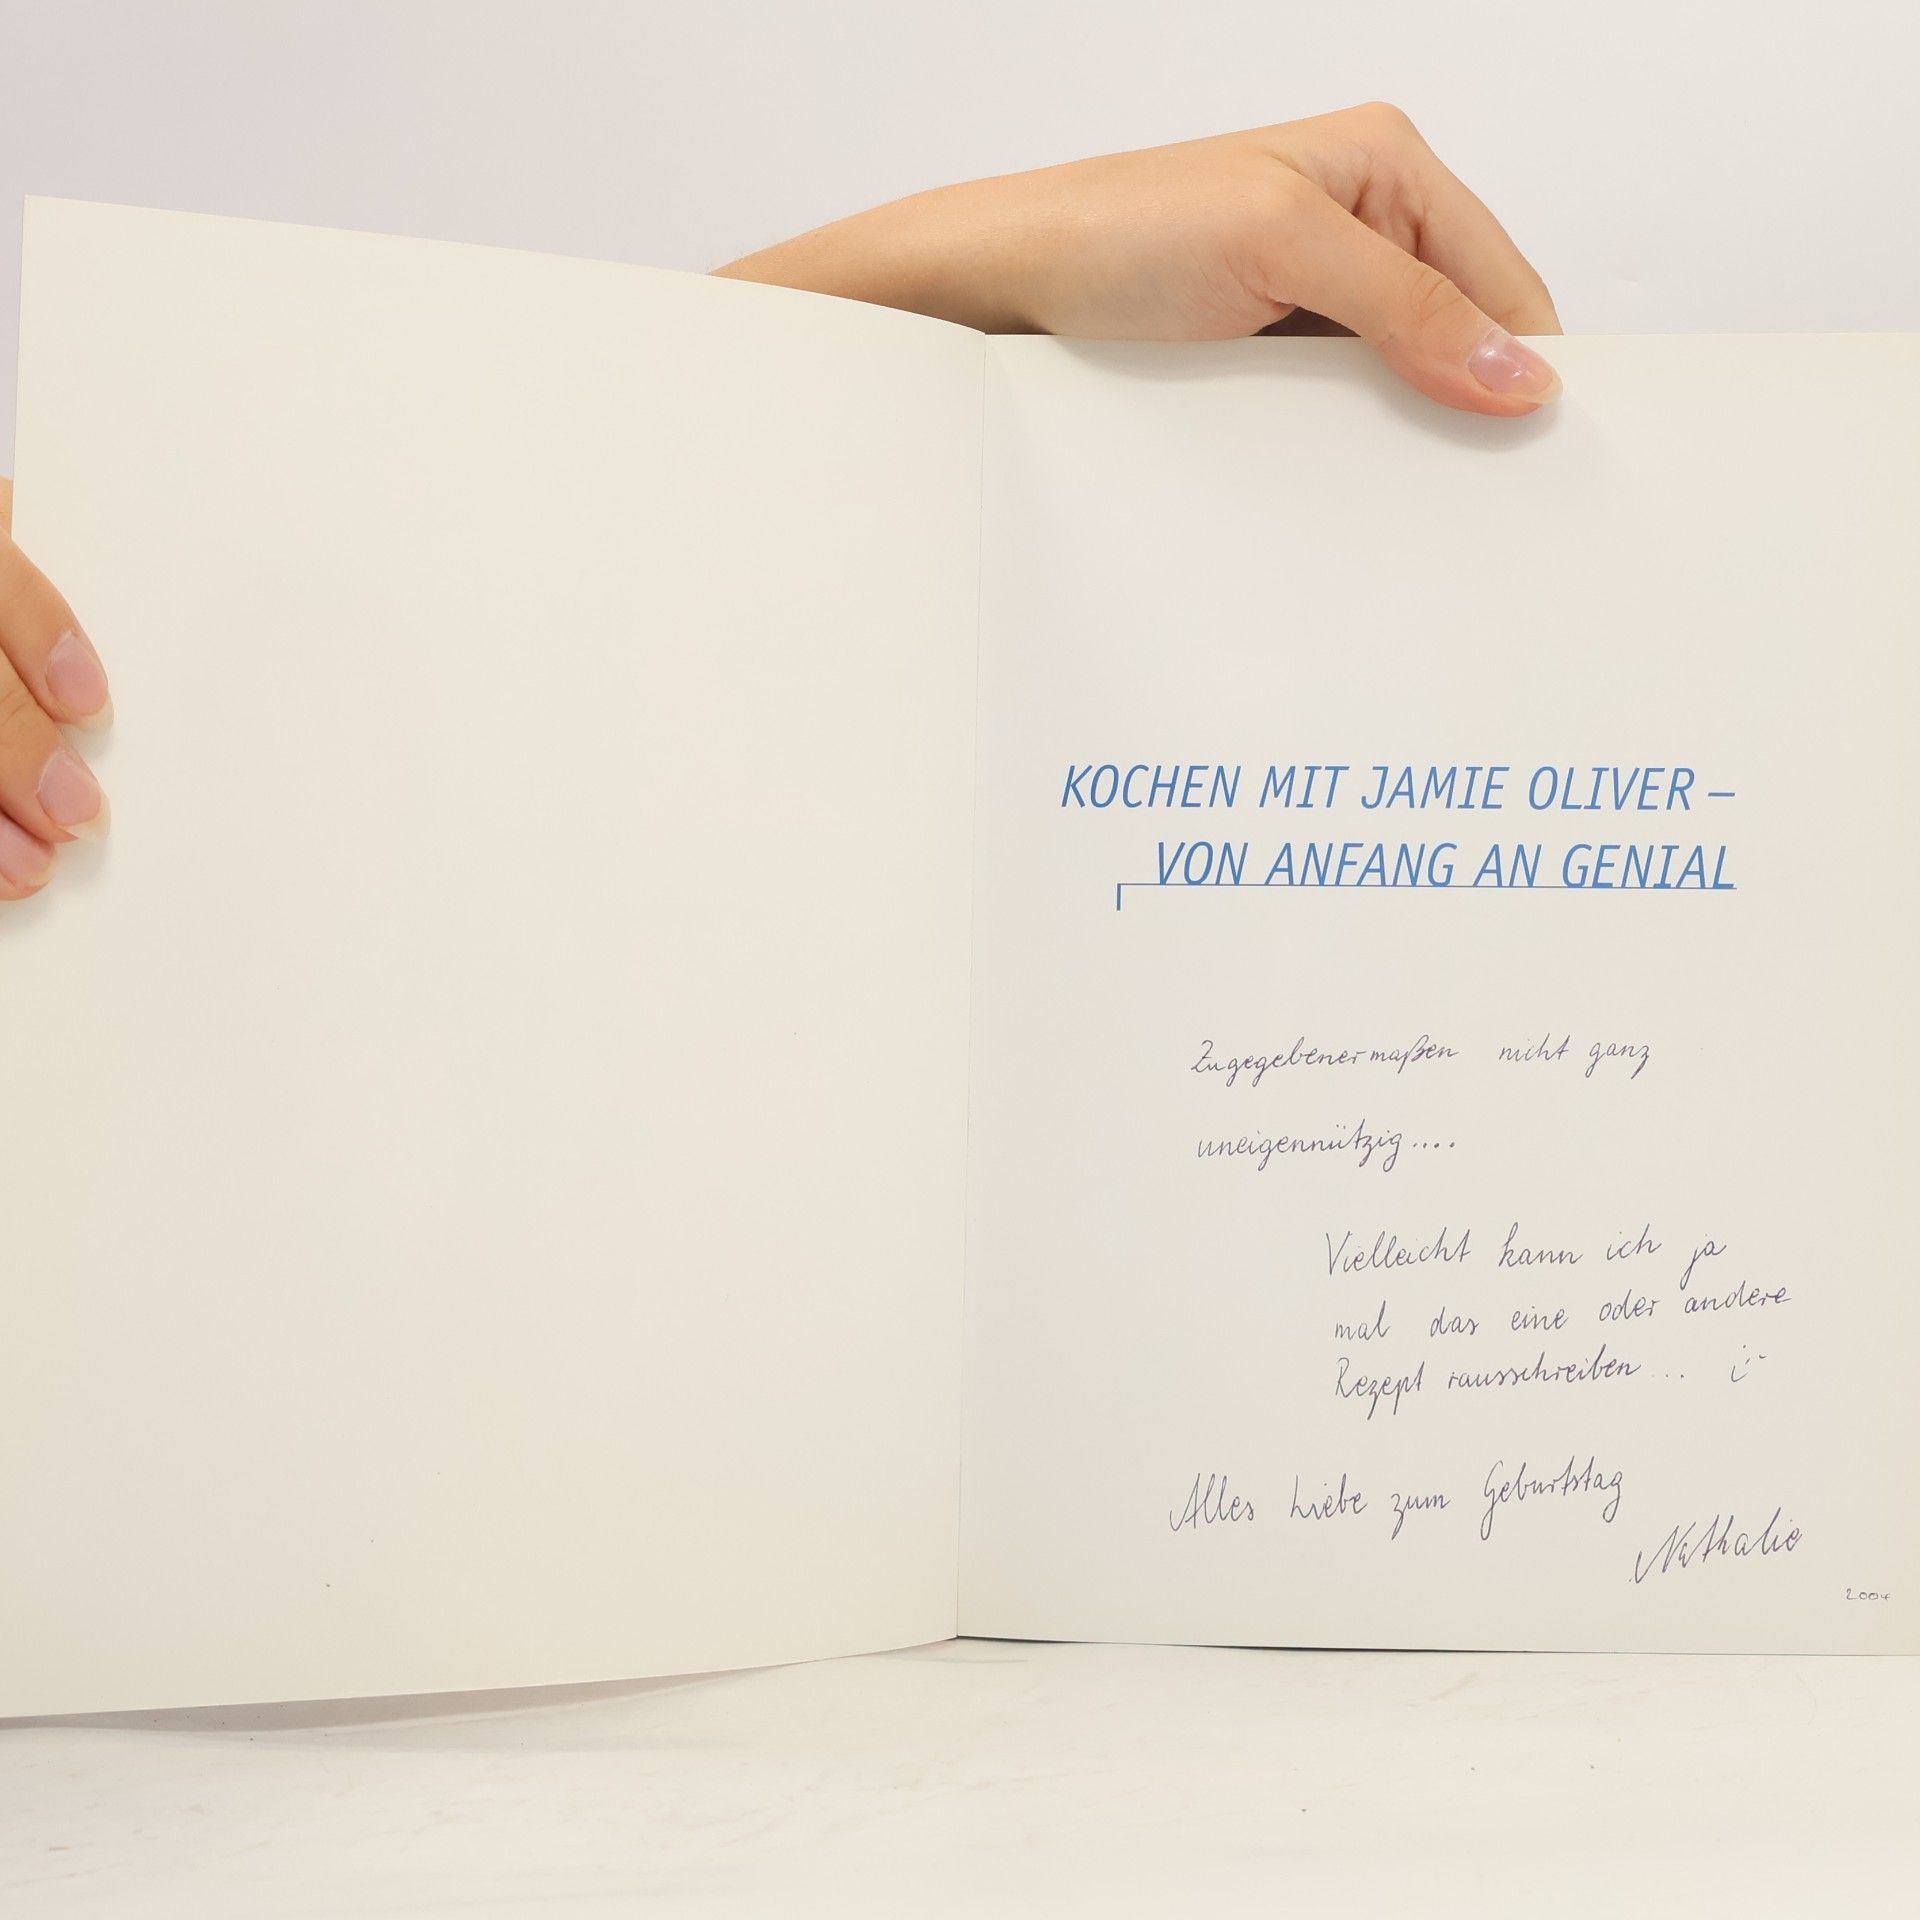 KOCHEN MIT JAMIE OLIVER –
VON ANFANG AN GENIAL
Zugegebenermaßen nicht ganz
uneigennützig....
Vielleicht kann ich ja
mal das eine oder andere
Rezept rausschreiben...
Alles Liebe zum Geburtstag
Nathalie
2004